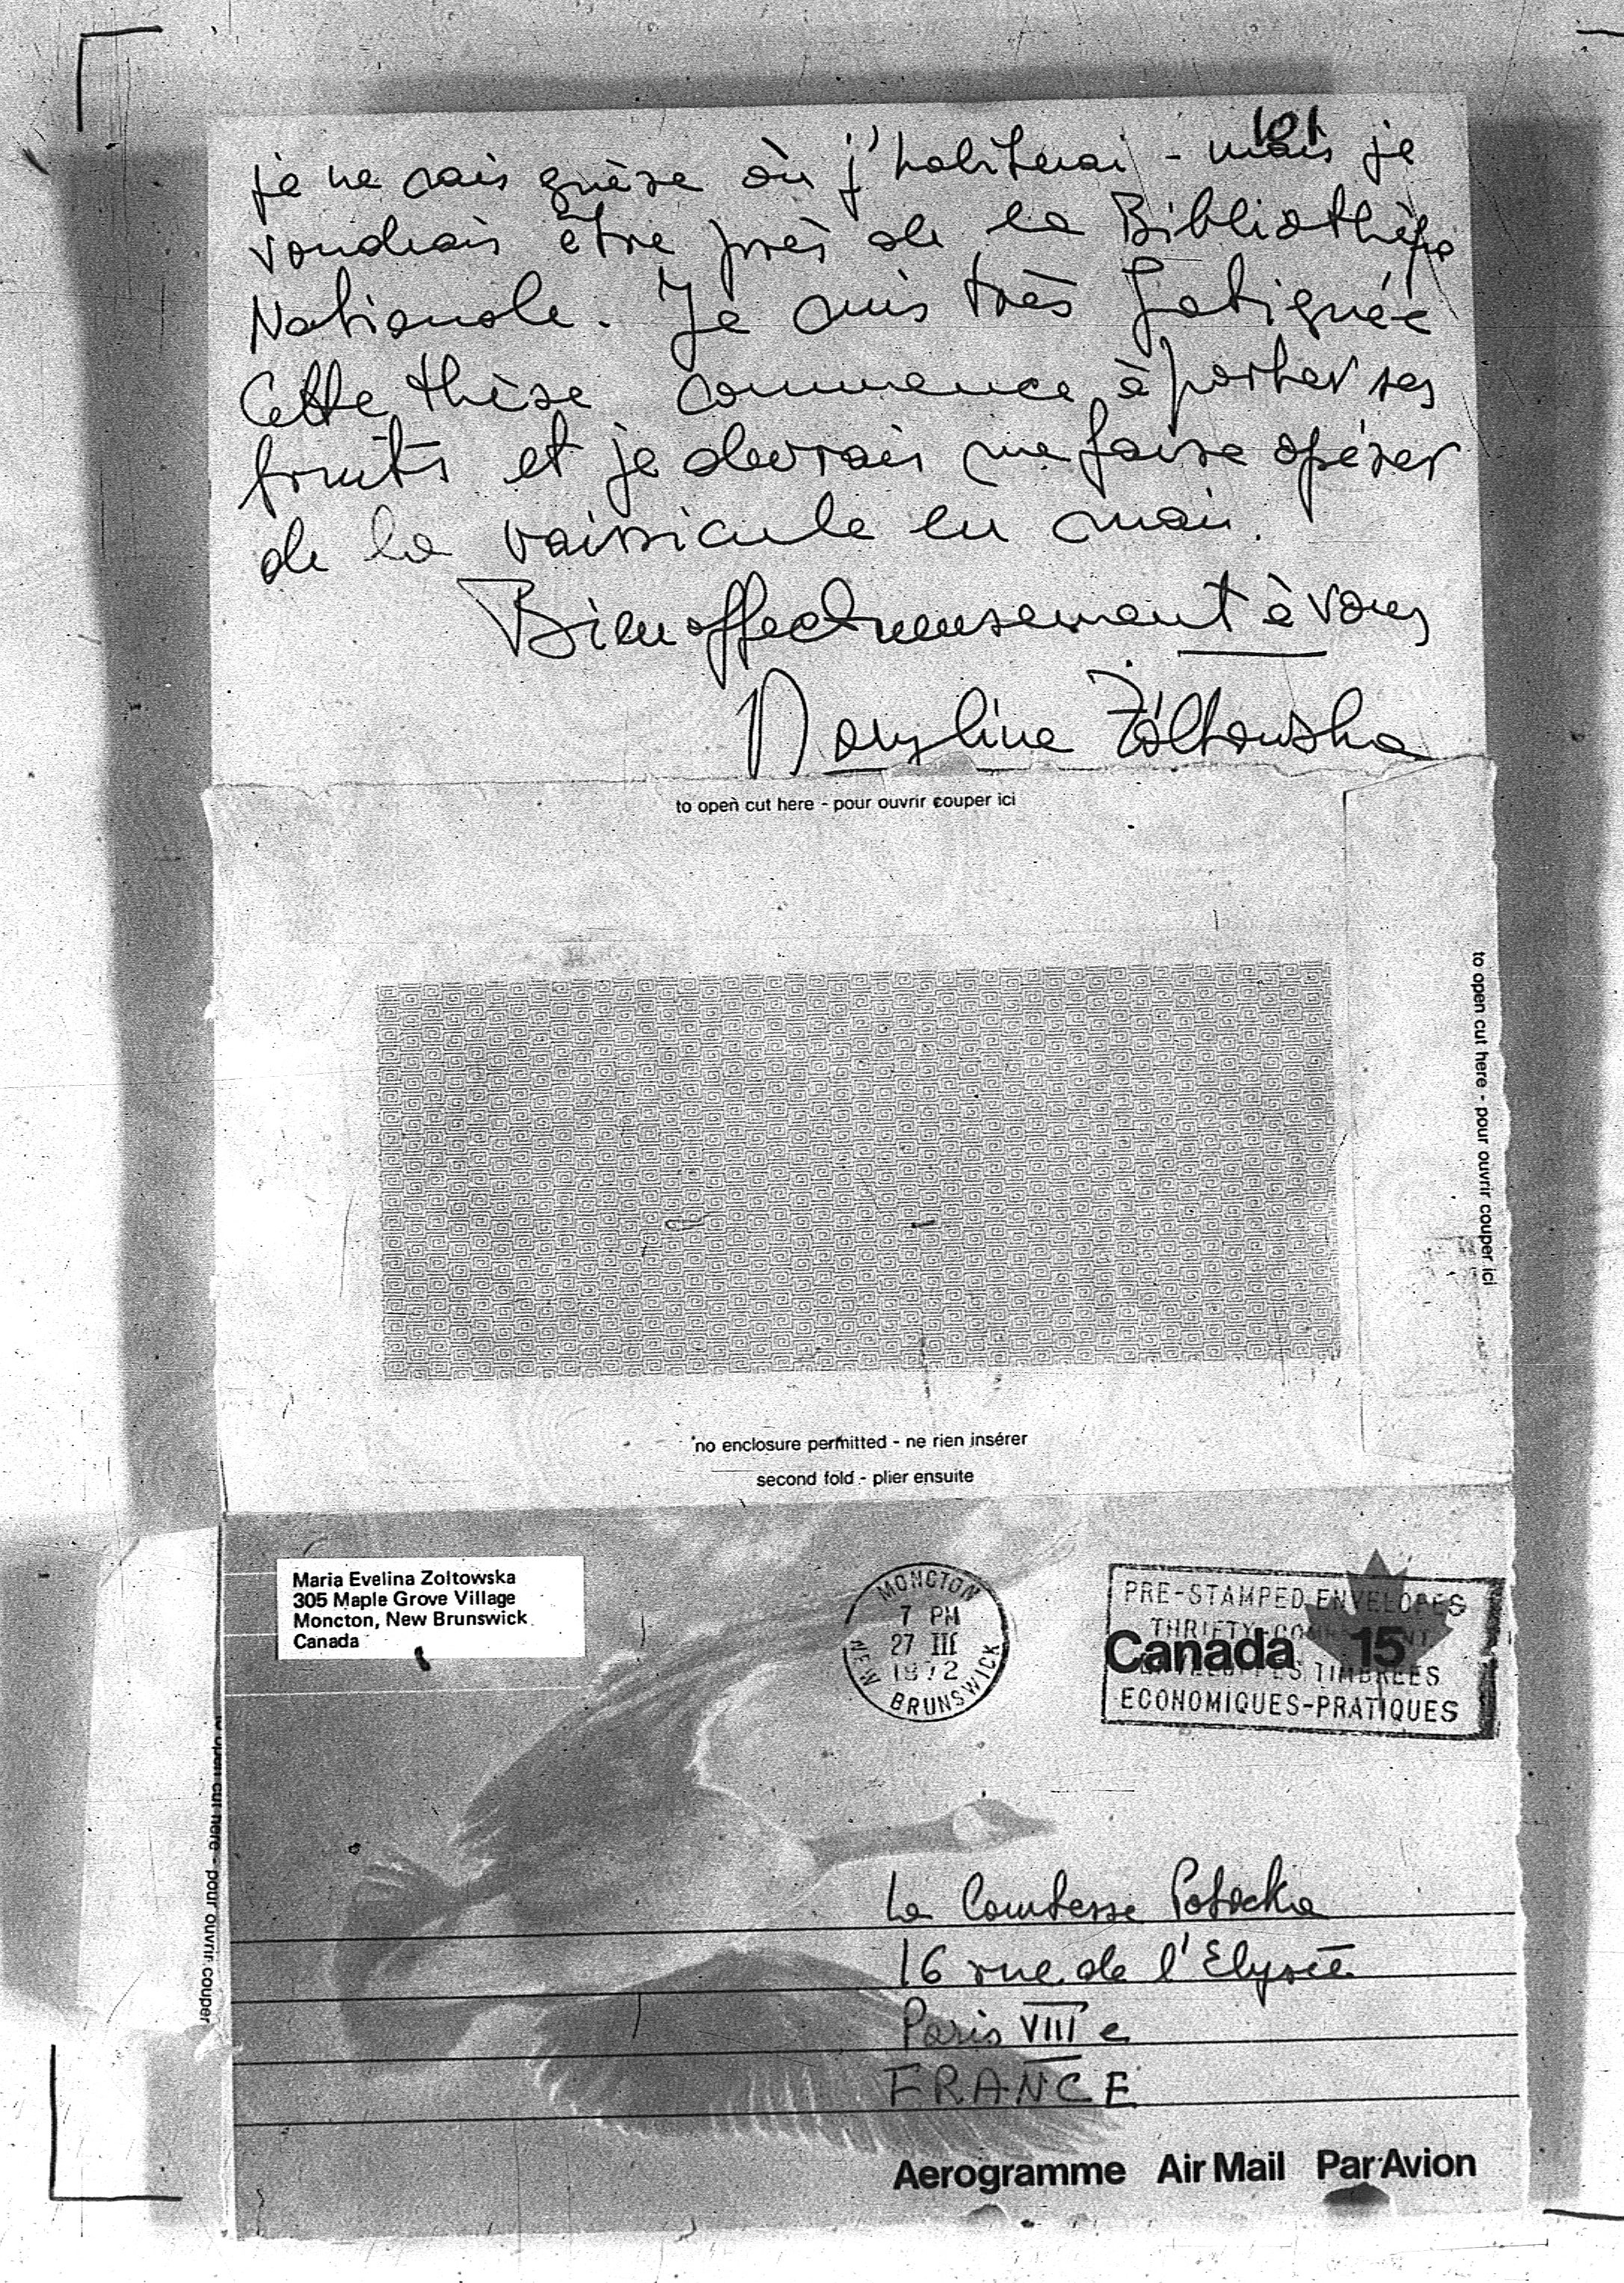 101
je ne sais guère où j'habiterai - mais je
voudrais être près de la Bibliothèque
Nationale. Je suis très fatiguée
Cette thèse commence à porter ses
fruits et je devrais me faire opérer
de la vaissicule en mai.
Bien affectueusement à vous
Maryline Żółtowska
to open cut here - pour ouvrir couper ici
to open cut here - pour ouvrir couper ici
no enclosure permitted - ne rien insérer
second fold - plier ensuite
Maria Evelina Zoltowska
305 Maple Grove Village
Moncton, New Brunswick
Canada
MONCTON
7 PM
27 III
1972
NEW BRUNSWICK
PRE-STAMPED ENVELOPES
THRIFTY-
Canada 15
TIMBREES
ECONOMIQUES-PRATIQUES
to open cut here - pour ouvrir couper
La Comtesse Potocka
16 rue de l'Elysée
Paris VIII e
FRANCE
Aerogramme Air Mail Par Avion